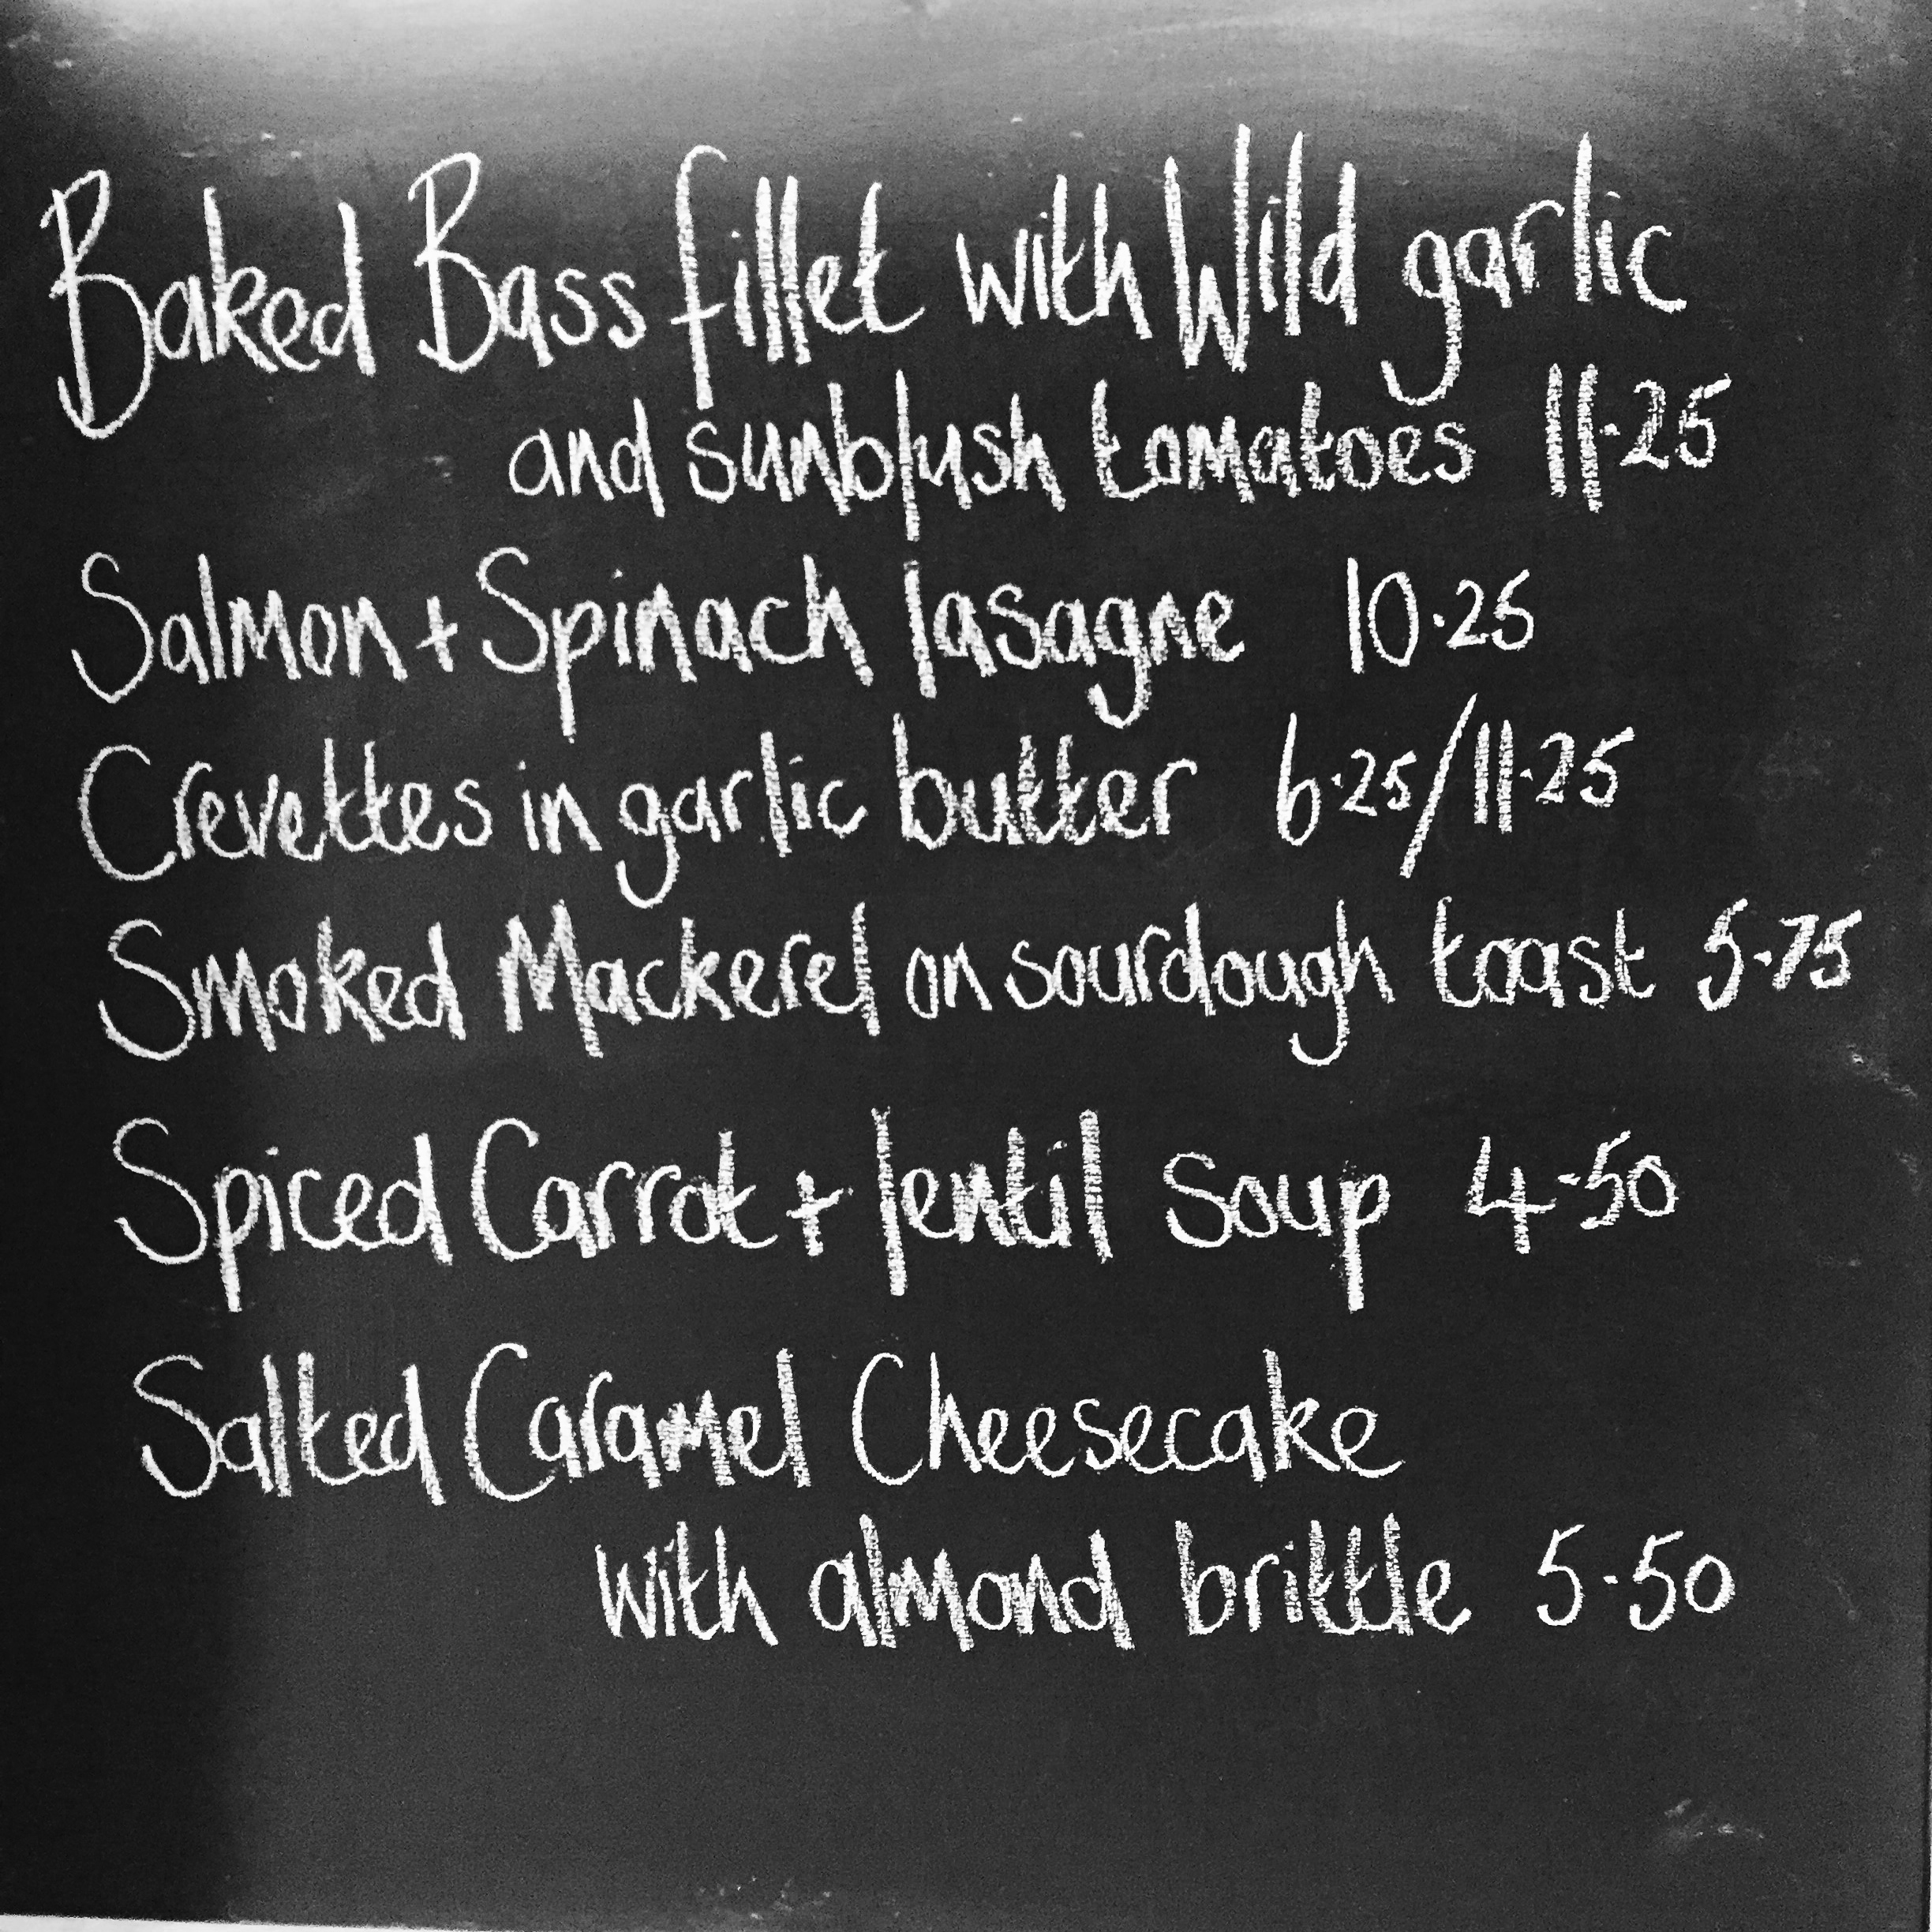 Baked Bass fillet with Wild garlic
and sunblush tomatoes 11·25
Salmon + Spinach lasagne 10·25
Crevettes in garlic butter 6·25/11·25
Smoked Mackerel on sourdough toast 5·75
Spiced Carrot + lentil Soup 4·50
Salted Caramel Cheesecake
with almond brittle 5·50